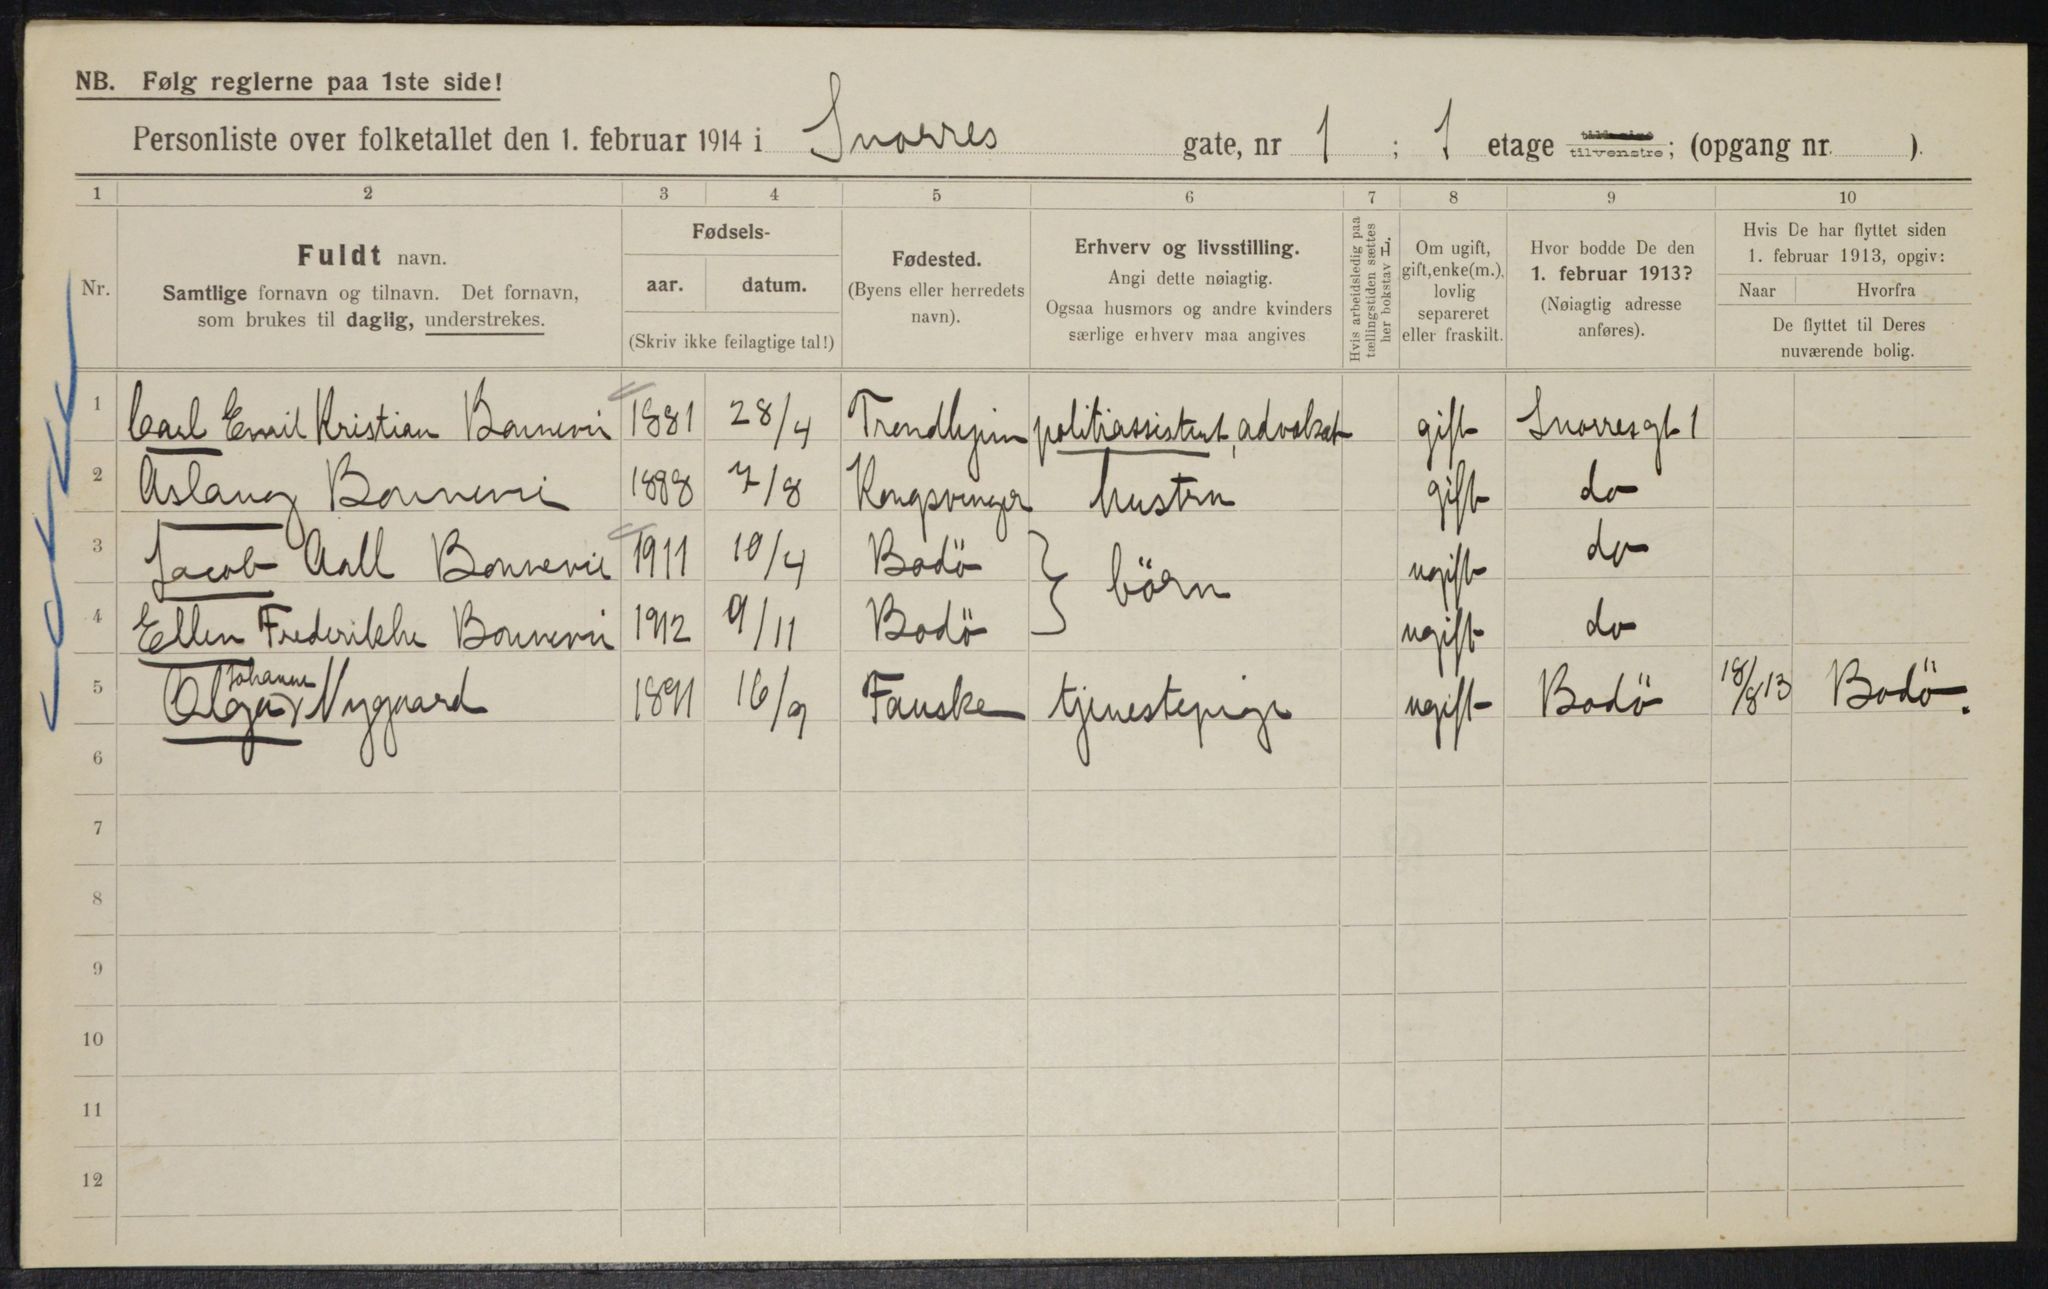 NB. Følg reglerne paa 1ste side!
Personliste over folketallet den 1. februar 1914 i Snorres gate, nr 1 ; 1 etage tilvenstre; (opgang nr. ).
1 2 3 4 5 6 7 8 9 10
Nr.
Fuldt navn.
Samtlige fornavn og tilnavn. Det fornavn,
som brukes til daglig, understrekes.
Fødsels-
aar. datum.
(Skriv ikke feilagtige tal!)
Fødested.
(Byens eller herredets
navn).
Erhverv og livsstilling.
Angi dette nøiagtig.
Ogsaa husmors og andre kvinders
særlige erhverv maa angives
Hvis arbeidsledig paa
tællingstiden sættes
her bokstav L.
Om ugift,
gift, enke(m.),
lovlig
separeret
eller fraskilt.
Hvor bodde De den
1. februar 1913?
(Nøiagtig adresse
anføres).
Hvis De har flyttet siden
1. februar 1913, opgiv:
Naar Hvorfra
De flyttet til Deres
nuværende bolig.
1 Carl Emil Kristian Bonnevie 1881 28/4 Trondhjem politiassistent, advokat gift Snorresgt 1
2 Aslaug Bonnevie 1888 7/8 Kongsvinger hustru gift do
3 Jacob Aall Bonnevie 1911 10/4 Bodö } börn ugift do
4 Ellen Frederikke Bonnevie 1912 9/11 Bodö ugift do
5 Olga Johanne Nygaard 1891 16/9 Fauske tjenestepige ugift Bodö 18/8 13 Bodö.
6
7
8
9
10
11
12